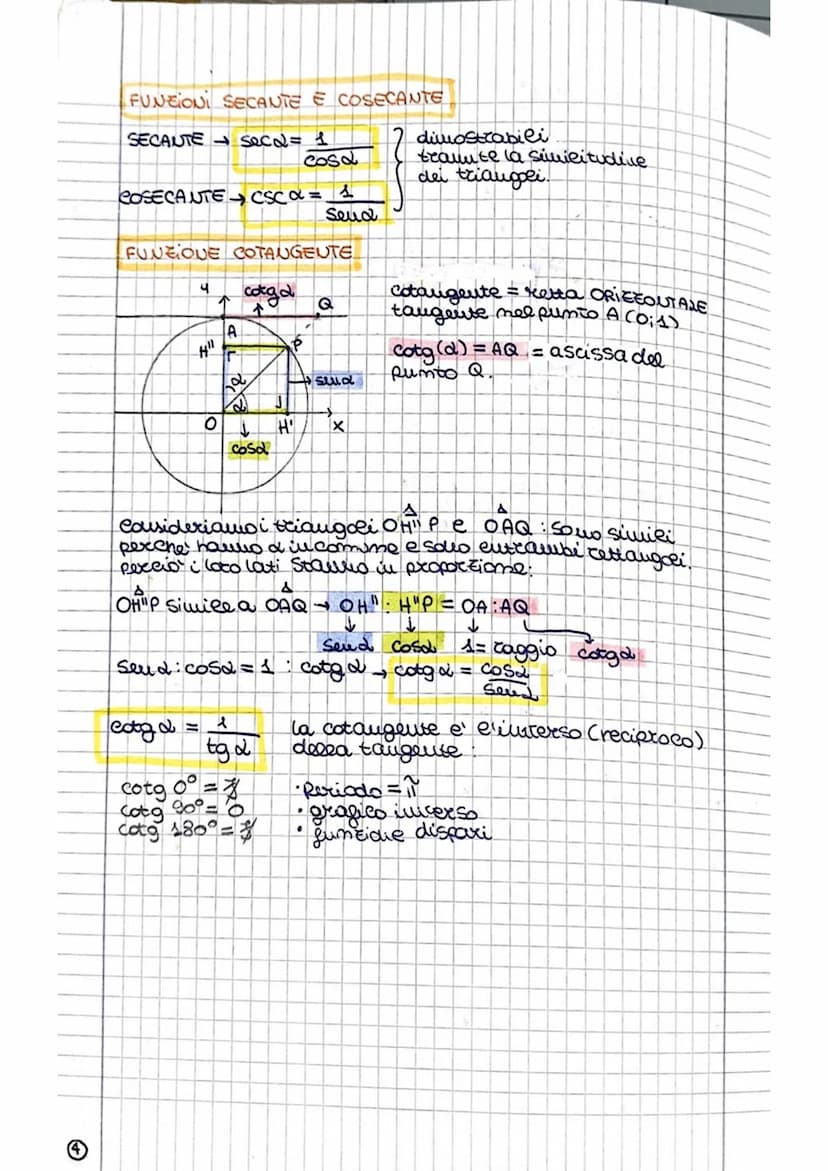 FUNZIONI SECANTE E COSECANTE
SECANTE → sec α = 1/cos α
dimostrabili
tramite la similitudine
dei triangoli.
COSECANTE → csc α = 1/sen α
FUNZIONE COTANGENTE
y cotg α
Q
A
H'' P
α → sen α
α
O H' x
cos α
cotangente = retta ORIZZONTALE
tangente nel punto A (0;1)
cotg (α) = AQ = ascissa del
punto Q.
Consideriamo i triangoli OH''P e OAQ : sono simili
perché hanno α in comune e sono entrambi rettangoli.
perciò i loro lati stanno in proporzione:
OH''P simile a OAQ → OH'' : H''P = OA : AQ
sen α cos α 1= raggio cotg α
sen α : cos α = 1 : cotg α → cotg α = cos α/sen α
cotg α = 1/tg α
la cotangente è l'inverso (reciproco)
della tangente :
cotg 0° = ∄ · Periodo = π
cotg 90° = 0 · grafico inverso
cotg 180° = ∄ · funzione dispari
4